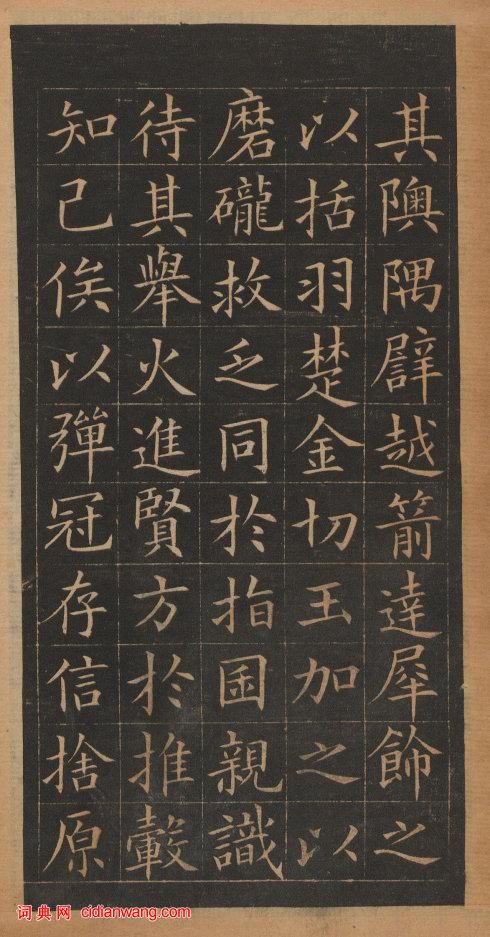 其隩隅譬越箭達犀飾之
以括羽楚金切玉加之以
磨礱救乏同於指囷親識
待其舉火進賢方於推轂
知己俟以彈冠存信捨原
词典网 cidianwang.com